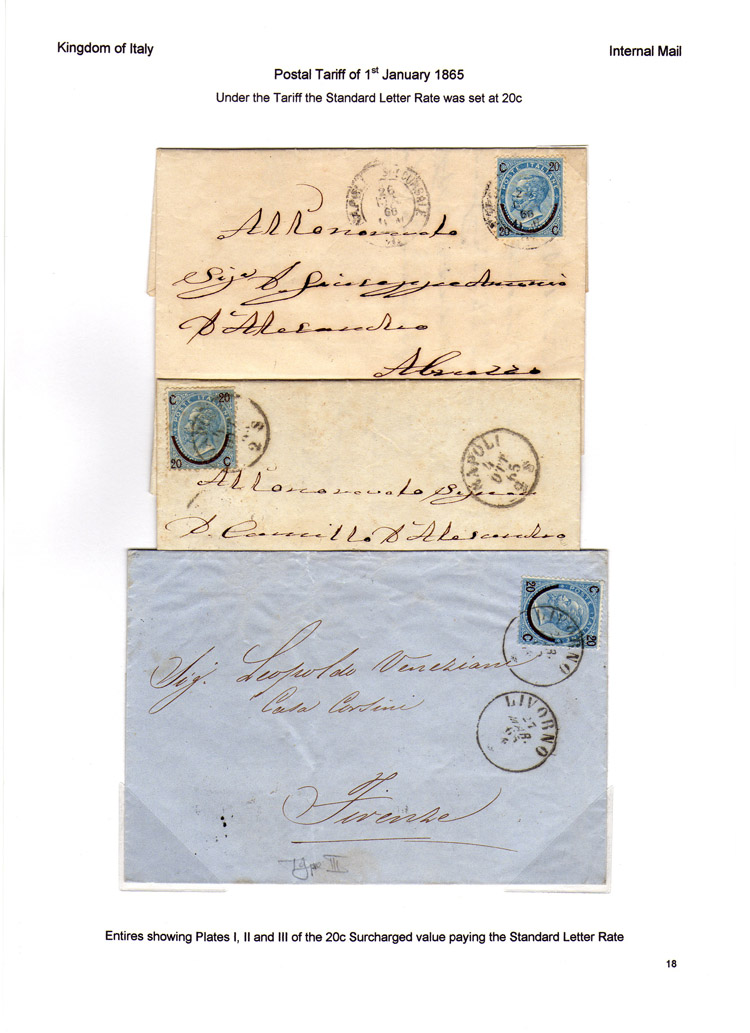 Kingdom of Italy
Internal Mail
Postal Tariff of 1st January 1865
Under the Tariff the Standard Letter Rate was set at 20c
C 20
POSTE ITALIANE
20 C
66
All'Onorevole
Sigr D. Giuseppe Antonio
D'Alesandro
Abruzzo
C 20
POSTE ITALIANE
20 C
NAPOLI
4
OTT
65
All'Onorevole
D. Camillo D'Alesandro
C 20
POSTE
20 C
LIVORNO
LIVORNO
27
MAR.
Sig. Leopoldo Veneziani
Casa Corsini
Firenze
Type III
Entires showing Plates I, II and III of the 20c Surcharged value paying the Standard Letter Rate
18